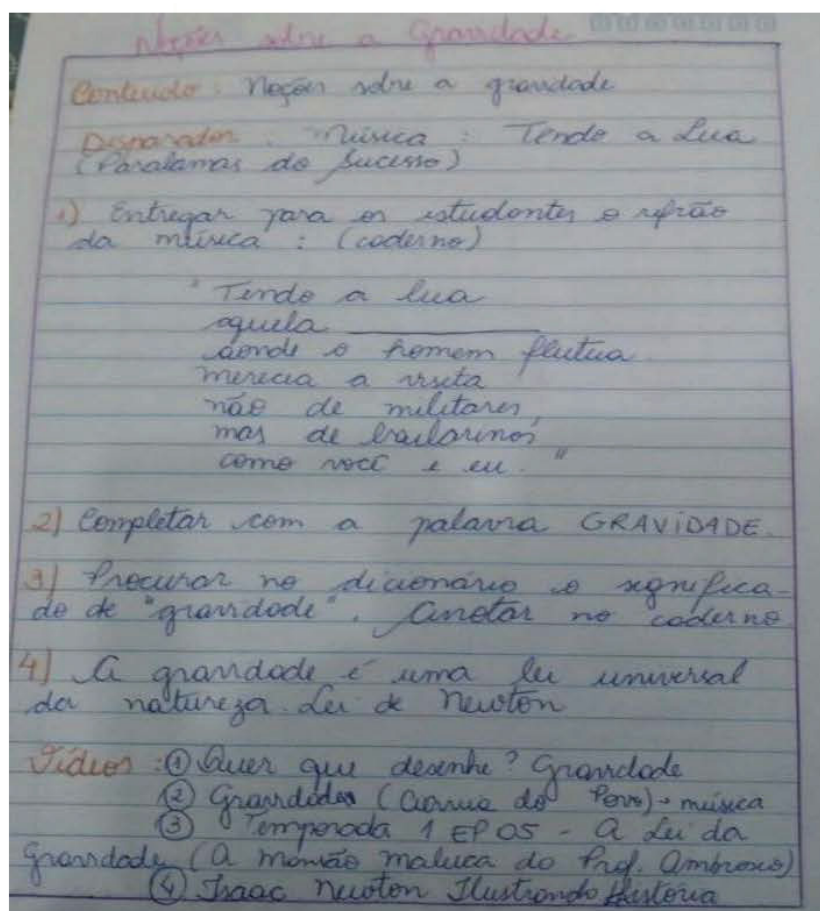 Noções sobre a Gravidade
Conteúdo: Noções sobre a gravidade
Disparador: Música: Tendo a Lua
(Paralamas do Sucesso)
1) Entregar para os estudantes o refrão
da música: (caderno)
"Tendo a lua
aquela ________
aonde o homem flutua
merecia a visita
não de militares,
mas de bailarinos
como você e eu."
2) Completar com a palavra GRAVIDADE.
3) Procurar no dicionário o significa-
do de "gravidade". Anotar no caderno
4) A gravidade é uma lei universal
da natureza. Lei de Newton
Vídeos: ① Quer que desenhe? Gravidade
② Gravidade ( do Povo) → música
③ Temporada 1 EP 05 - A Lei da
Gravidade (A mansão maluca do Prof. Ambrosio)
④ Isaac Newton Ilustrando História